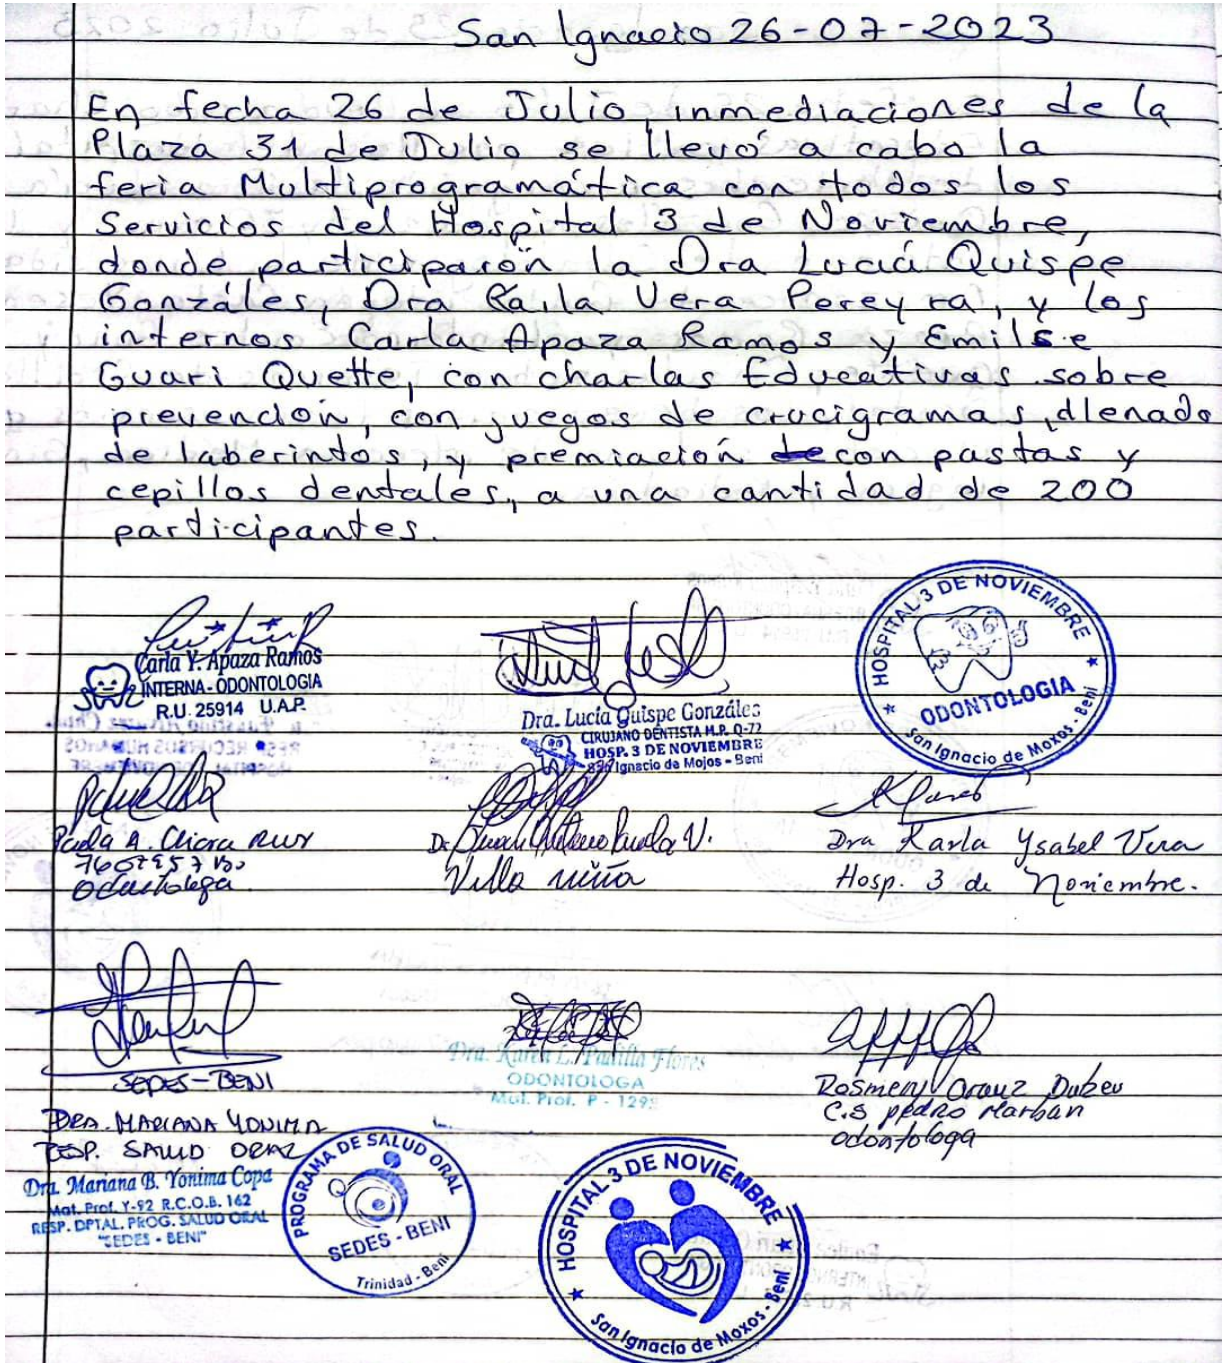 San Ignacio 26-07-2023
En fecha 26 de Julio, inmediaciones de la
Plaza 31 de Julio se llevó a cabo la
feria Multiprogramática con todos los
Servicios del Hospital 3 de Noviembre,
donde participarón la Dra Lucía Quispe
Gonzáles, Dra Karla Vera Pereyra, y los
internos Carla Apaza Ramos y Emilse
Guari Quette, con charlas Educativas sobre
prevención, con juegos de crucigramas, llenado
de laberintos, y premiación con pastas y
cepillos dentales, a una cantidad de 200
participantes.
Carla Y. Apaza Ramos
INTERNA - ODONTOLOGIA
R.U. 25914 U.A.P.
Dra. Lucía Quispe Gonzáles
CIRUJANO DENTISTA M.P. Q-72
HOSP. 3 DE NOVIEMBRE
San Ignacio de Mojos - Beni
HOSPITAL 3 DE NOVIEMBRE
ODONTOLOGIA
San Ignacio de Moxos - Beni
Paola A.
Odontologa
Dr. Juan
Villa
Dra Karla Ysabel Vera
Hosp. 3 de Noviembre.
SEDES-BENI
DRA. MARIANA YONIMA
RESP. SALUD ORAL
Dra. Mariana B. Yonima Copa
Mat. Prof. Y-92 R.C.O.B. 162
RESP. DPTAL. PROG. SALUD ORAL
"SEDES - BENI"
PROGRAMA DE SALUD ORAL
SEDES - BENI
Trinidad - Beni
Dra. Karen L. Padilla Flores
ODONTOLOGA
Mat. Prof. P - 129
Rosmery
C.S pedro Marban
odontologa
HOSPITAL 3 DE NOVIEMBRE
San Ignacio de Moxos - Beni